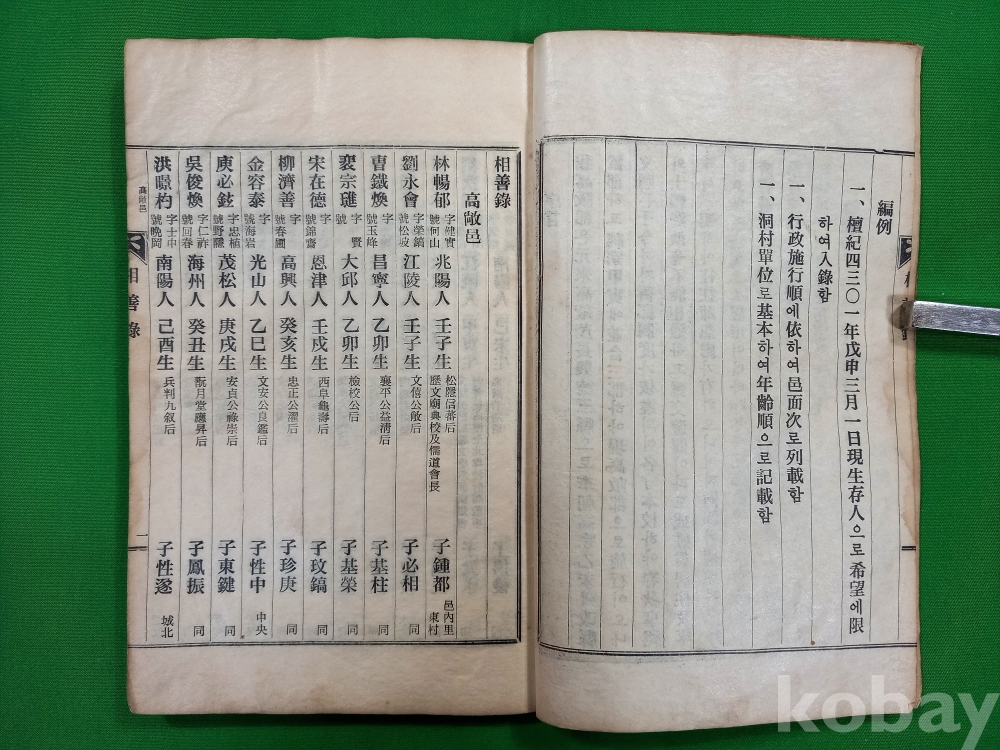 編例
一、檀紀四三〇一年戊申三月一日現生存人으로希望에限
하여入錄함
一、行政施行順에依하여邑面次로列載함
一、洞村單位로基本하여年齡順으로記載함
相善錄
高敞邑
林暢郁 字健實 號何山 兆陽人 壬子生 松隱信蕃后 歷文廟典校及儒道會長 子鍾都 邑內里 東村
劉永會 字榮鎬 號松坡 江陵人 壬子生 文僖公敞后 子必相 同
曺鐵煥 字 號玉峰 昌寧人 乙卯生 襄平公益淸后 子基柱 同
裵宗璡 字賢 號 大邱人 乙卯生 檢校公后 子基榮 同
宋在德 字 號錦齋 恩津人 壬戌生 西阜龜壽后 子玟鎬 同
柳濟善 字 號春圃 高興人 癸亥生 忠正公濯后 子珍庚 同
金容泰 字 號海岩 光山人 乙巳生 文安公良鑑后 子性中 中央
庾必鉉 字忠植 號野隱 茂松人 庚戌生 安貞公祿崇后 子東鍵 同
吳俊煥 字仁祚 號回春 海州人 癸丑生 翫月堂應昇后 子鳳振 同
洪暻杓 字士中 號晩岡 南陽人 己酉生 兵判九叙后 子性遂 城北
高敞邑
相善錄
一
kobay